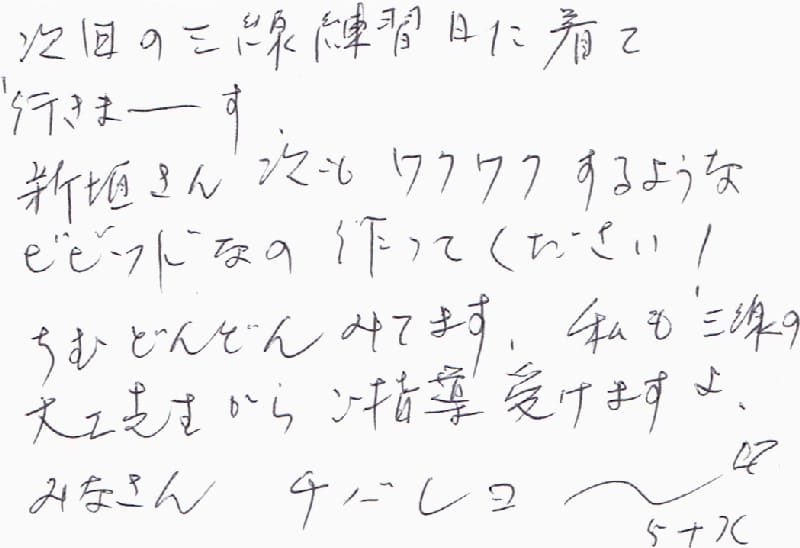 次回の三線練習日に着て
行きまーす
新垣さん 次も ワクワクするような
ビビッドなの 作ってください!
ちむどんどん みてます、私も 三線の
大工先生から ご指導 受けますよ、
みなさん チバレヨ〜